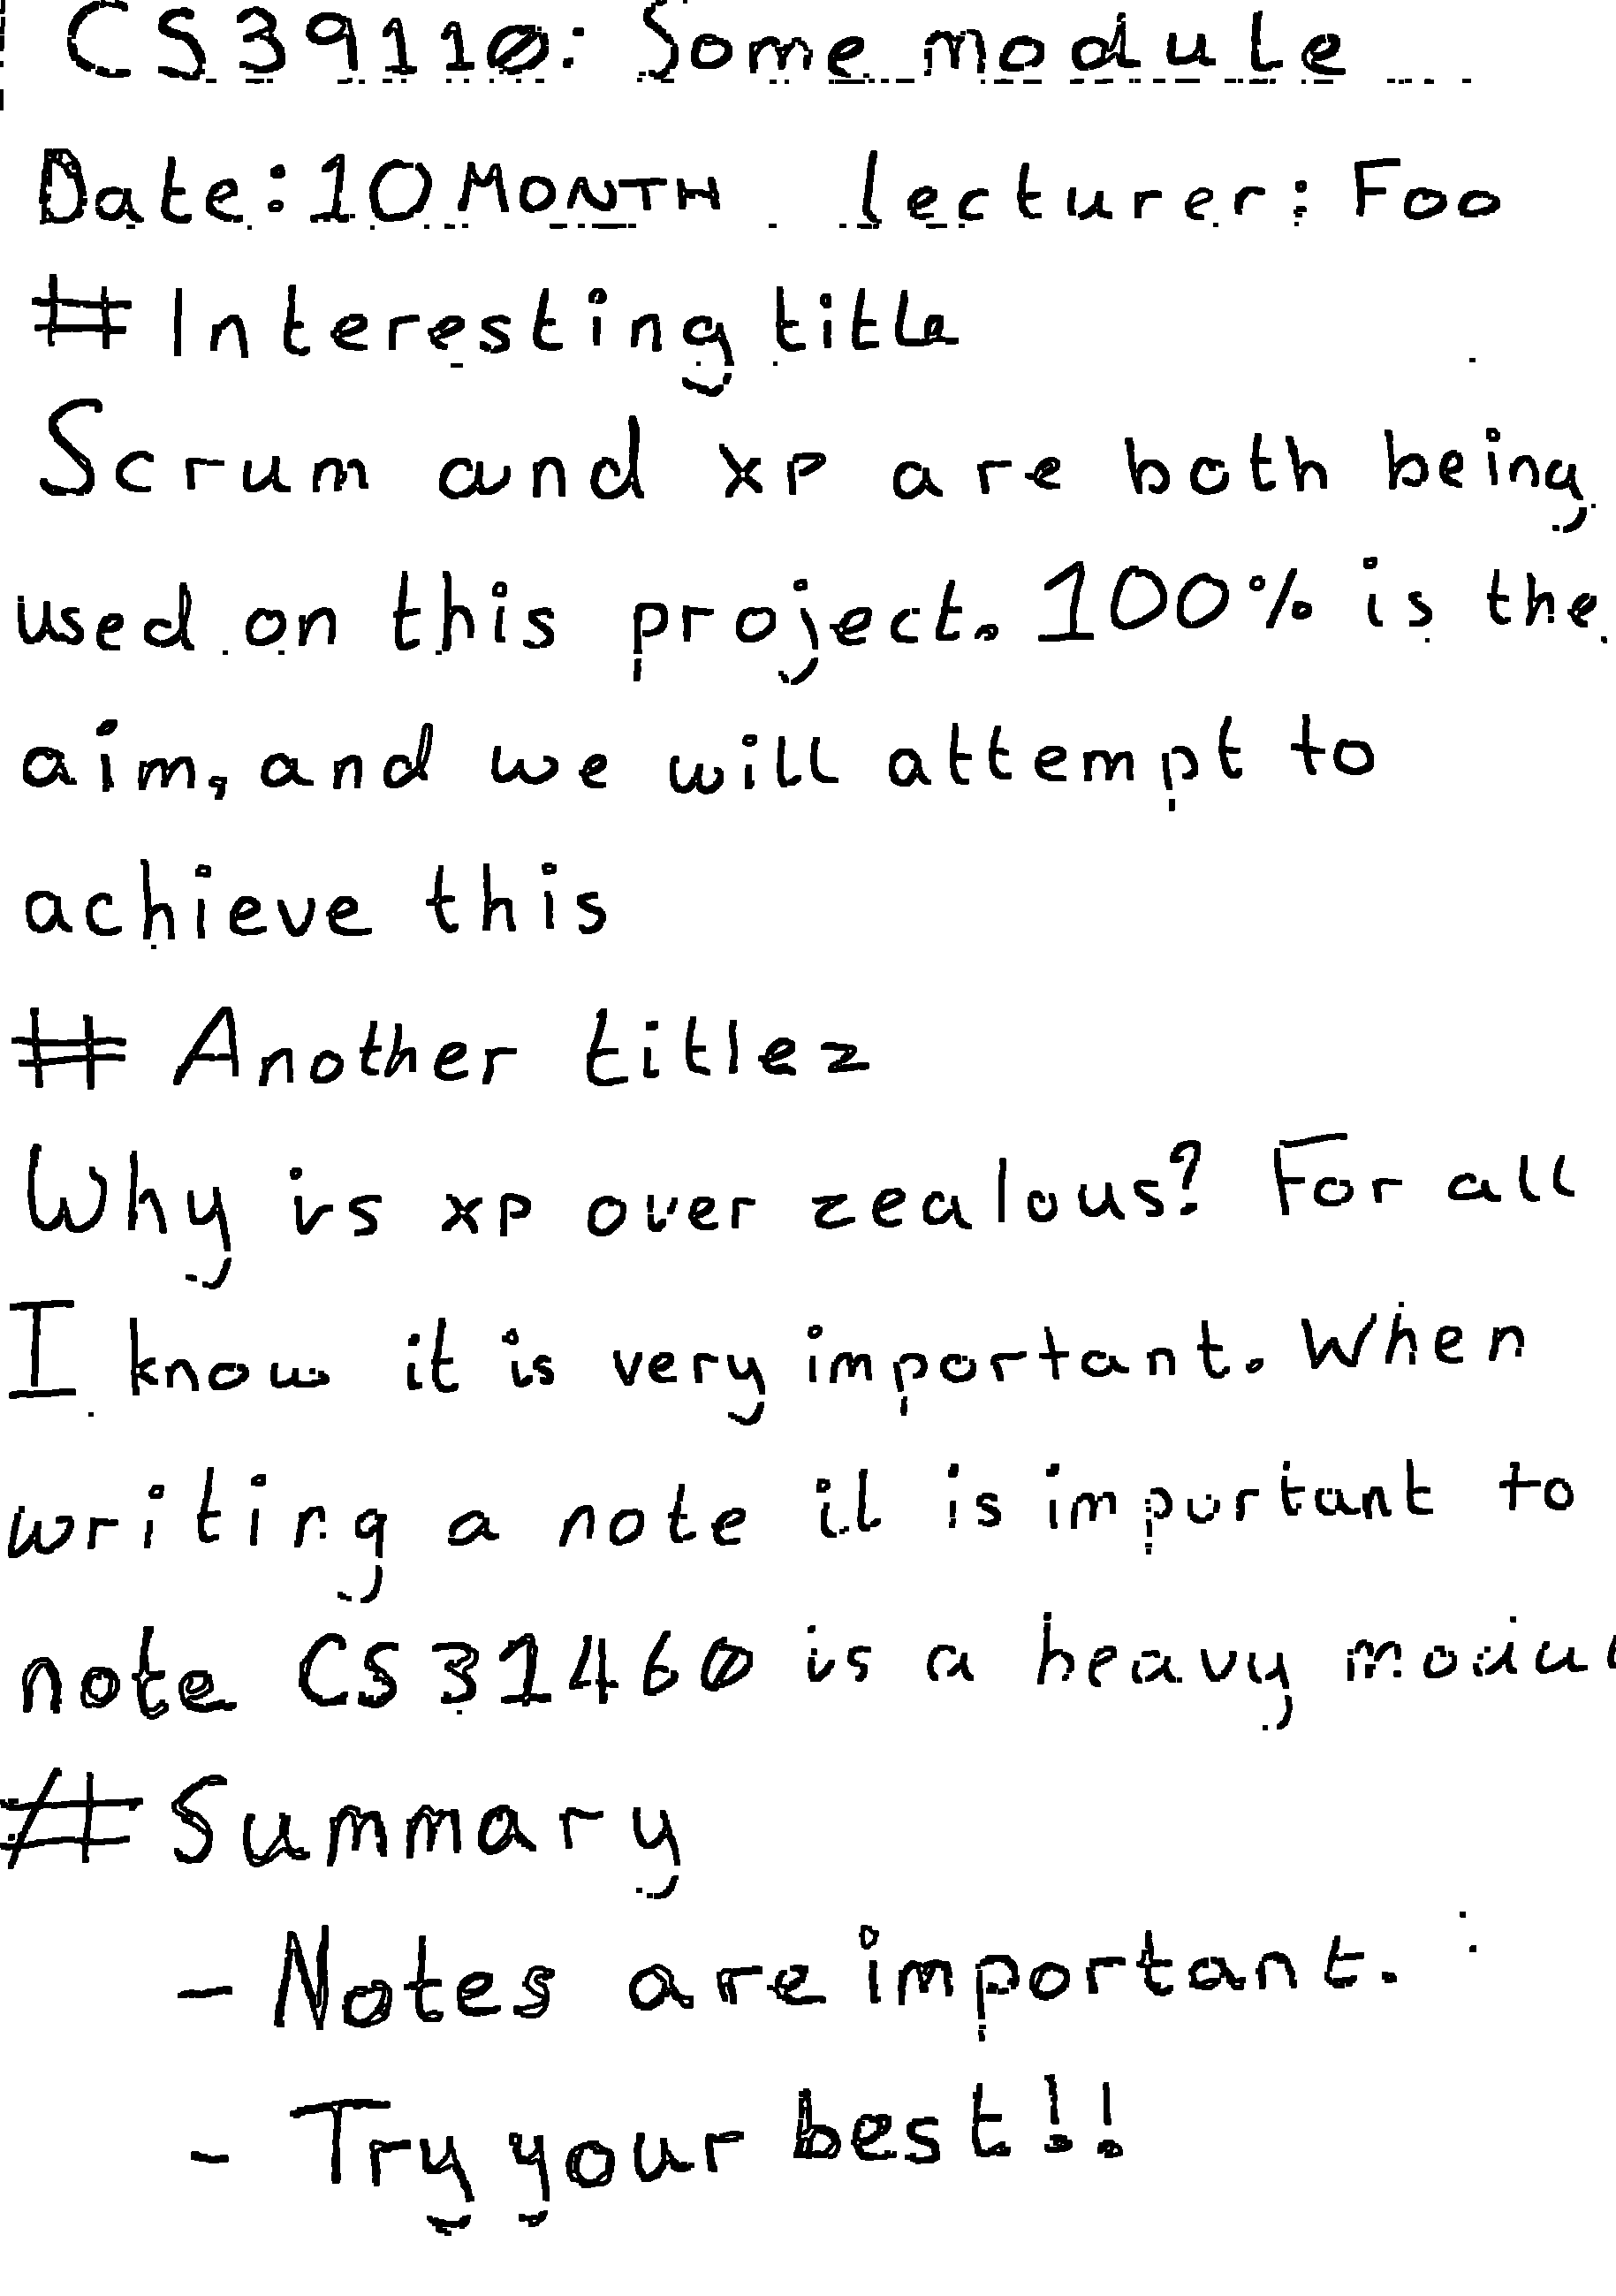 CS39110: Some module
Date: 10 MONTH lecturer: Foo
# Interesting title
Scrum and xp are both being
used on this project. 100% is the
aim, and we will attempt to
achieve this
# Another titlez
Why is xp over zealous? For all
I know it is very important. When
writing a note it is important to
note CS31460 is a heavy modul
# Summary
- Notes are important.
- Try your best!!